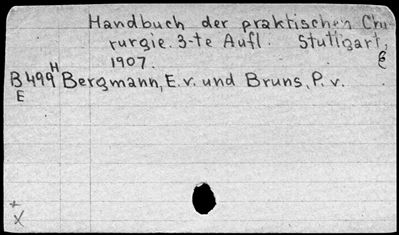 Handbuch der praktischen Chi
rurgie. 3-te Aufl. Stuttgart,
1907.
B499H Bergmann, E. v. und Bruns, P. v.
E
+
X